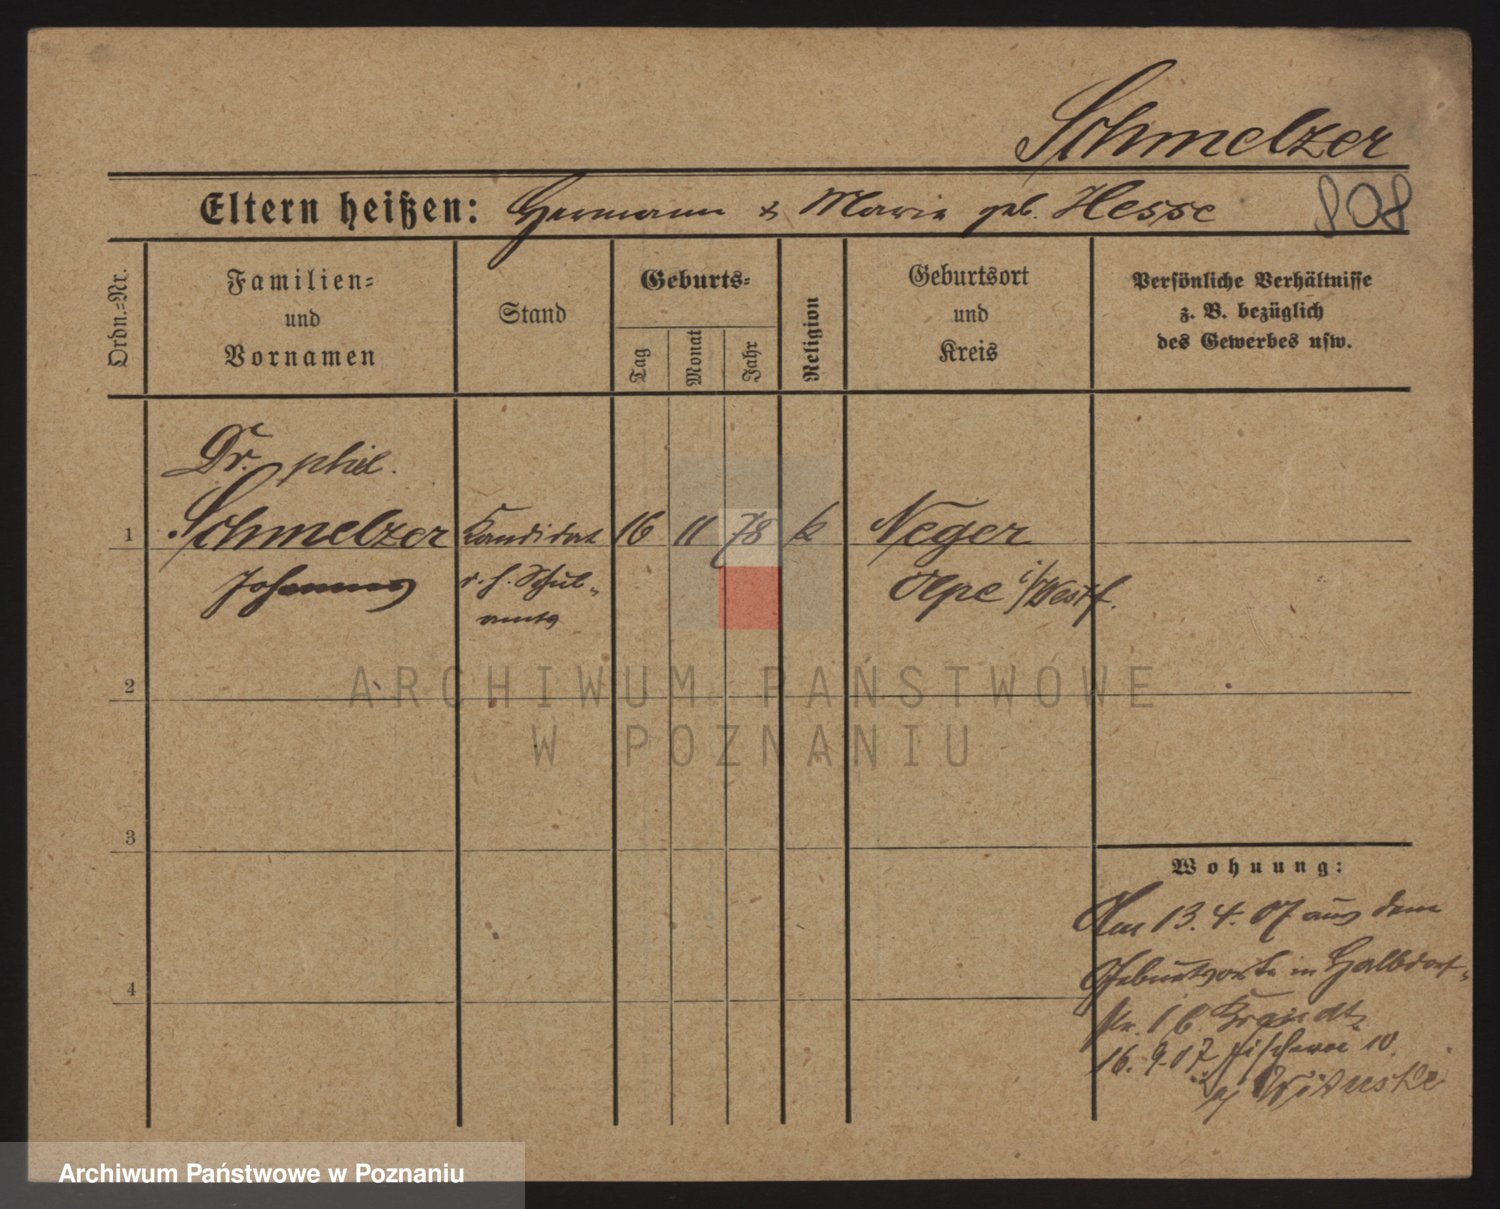 Schmelzer
Eltern heißen: Hermann & Marie geb. Hesse
808
Ordn.-Nr.
Familien-
und
Vornamen
Stand
Geburts-
Tag
Monat
Jahr
Religion
Geburtsort
und
Kreis
Persönliche Verhältnisse
z. B. bezüglich
des Gewerbes usw.
Dr. phil.
1 Schmelzer Kandidat 16 11 78 k Neger
Johannes d. h. Schul- Olpe i/Westf.
amts
2
3
4
ARCHIWUM PAŃSTWOWE
W POZNANIU
Wohnung:
Am 13. 4. 07 aus dem
Geburtsorte in Halbdorf-
str. 16
16. 9. 07 Fischerei 10
Archiwum Państwowe w Poznaniu